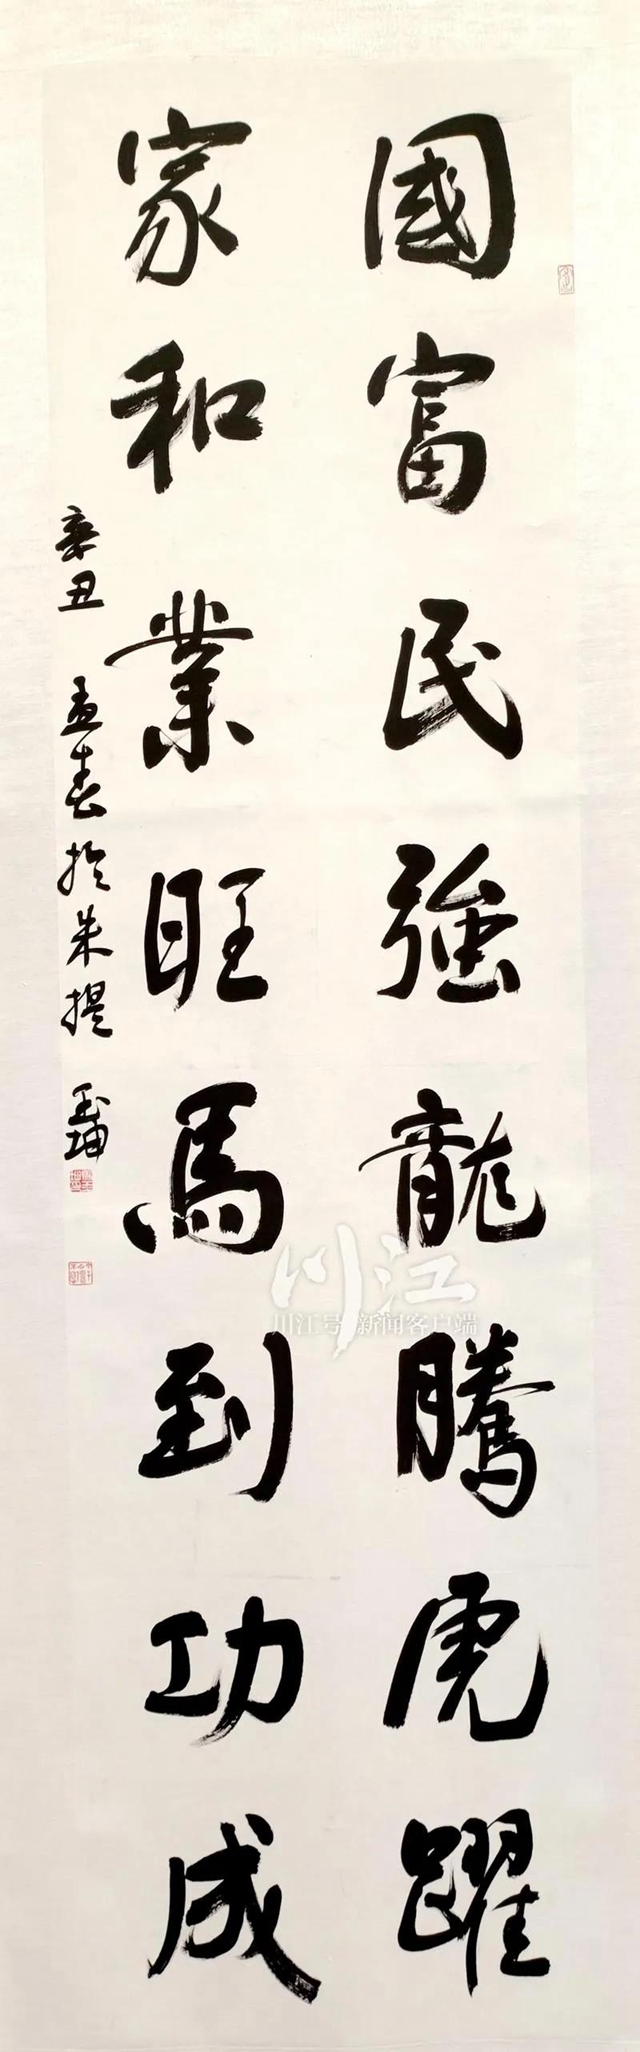 國富民強龍騰虎躍
家和業旺馬到功成
辛丑 孟春於朱提 玉坤
川江
川江号新闻客户端